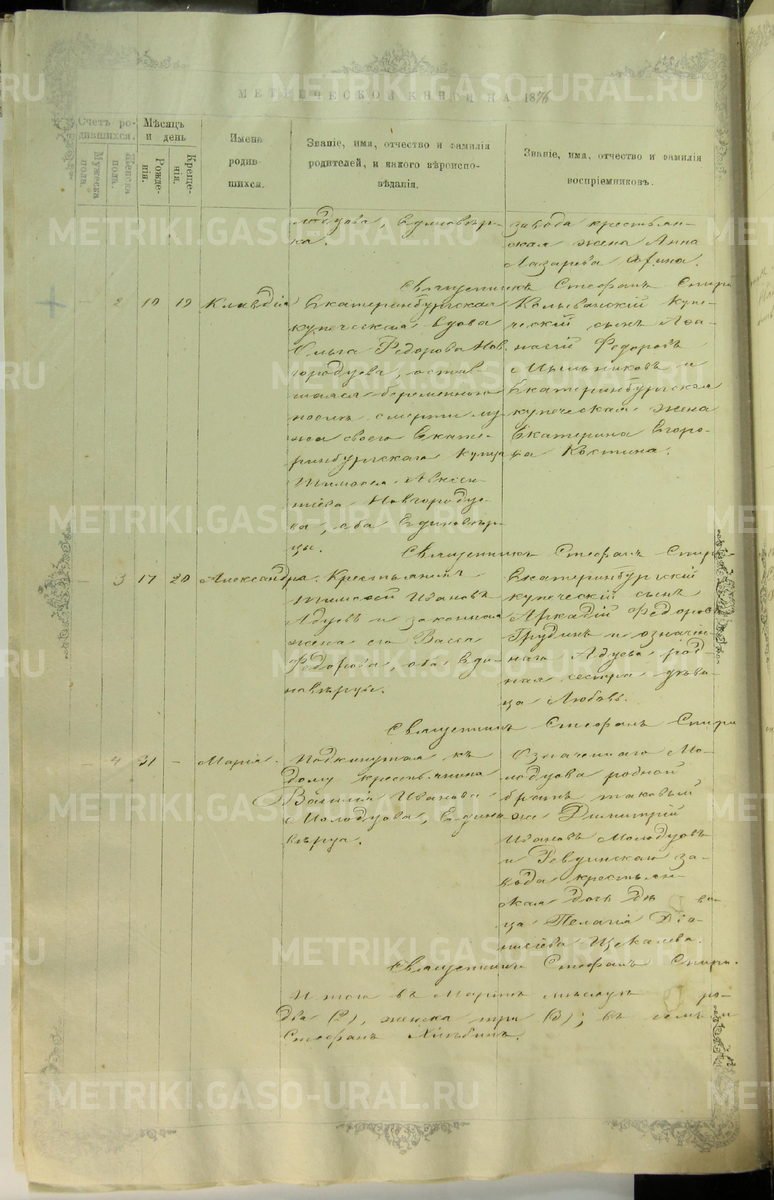 МЕТРИЧЕСКОЙ КНИГИ НА 1876
Счетъ родившихся.
Мужеска пола.
Женска пола.
Мѣсяцъ и день
Рожденія.
Крещенія.
Имена родившихся.
Званіе, имя, отчество и фамилія родителей, и какого вѣроисповѣданія.
Званіе, имя, отчество и фамилія воспріемниковъ.
Единовѣр-
ка.
завода крестьян-
ская жена Анна
Лазарева
Священникъ Стефанъ
2 10 19 Клавдія
Екатеринбургская
купеческая вдова
Ольга Федорова Нов
городцева, остав
шаяся беременною
послѣ смерти му
жа своего Екате-
ринбургскаго купца
Новгородце-
ва, оба Единовѣр
цы.
Колыванскій купе-
ческій сынъ Афа
насій Федоровъ
Мыльниковъ и
Екатеринбургская
купеческая жена
Екатерина Егоро-
ва Костина.
Священникъ Стефанъ
3 17 20 Александра.
Крестьянинъ
Тимофей Ивановъ
Адуевъ и законная
жена его Васса
Федорова, оба Еди
новѣрцы.
Екатеринбургскій
купеческій сынъ
Аркадій Федоров
Грудинъ и означен
наго Адуева род-
ная сестра дѣви-
ца Любовь.
Священникъ Стефанъ
4 31 - Марія.
Подкинутая къ
дому крестьянина
Василія Иванова
Молодцова, Едино
вѣрца.
Означеннаго Мо-
лодцова родной
братъ таковый
же Димитрій
Ивановъ Молодцовъ
и Ревдинскаго за-
вода крестьян-
ская дочь дѣ ви
ца Пелагія
Священникъ Стефанъ
Итого въ Мартѣ мѣсяцѣ ро-
два (2), женска три (3); въ семъ
Стефанъ
METRIKI.GASO-URAL.RU